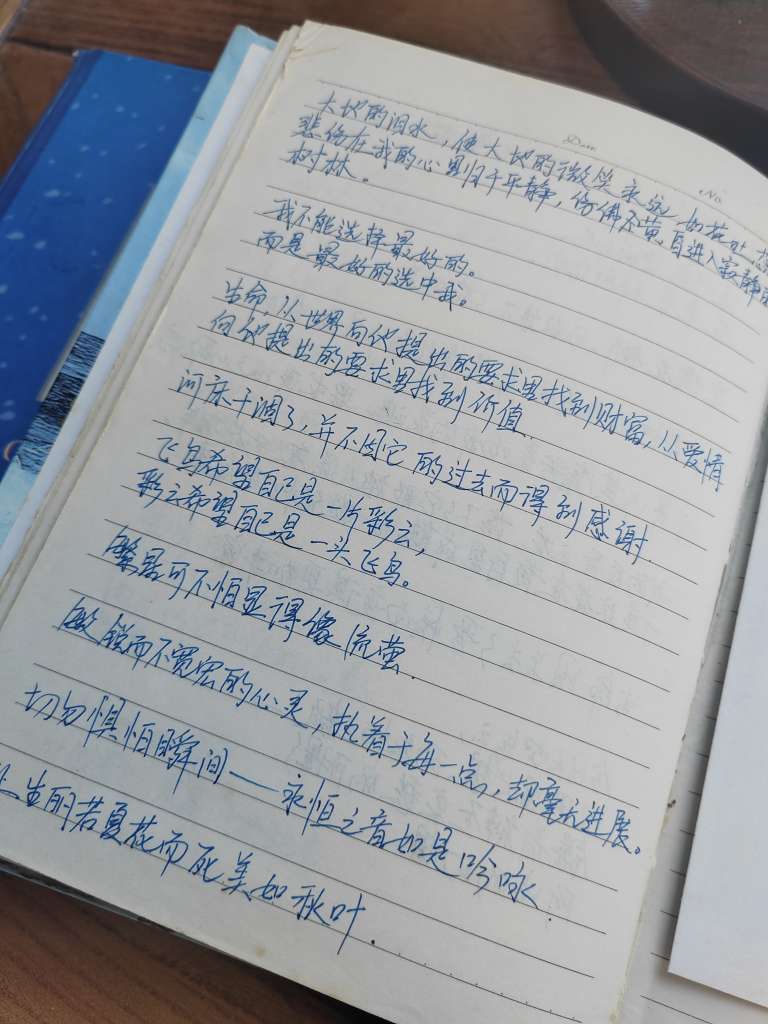 Date
No
大地的泪水，使大地的微笑永远如花
悲伤在我的心里归于平静，仿佛黄昏进入寂静
树林。
我不能选择最好的。
而是最好的选中我。
生命，从世界向他提出的要求里找到财富，从爱情
向他提出的要求里找到价值
河床干涸了，并不因它的过去而得到感谢
飞鸟希望自己是一片彩云，
彩云希望自己是一头飞鸟。
繁星可不怕显得像流萤
敏锐而不宽宏的心灵，执着于每一点，却毫无进展。
切勿惧怕瞬间——永恒之音如是吟咏
生的若夏花而死美如秋叶.